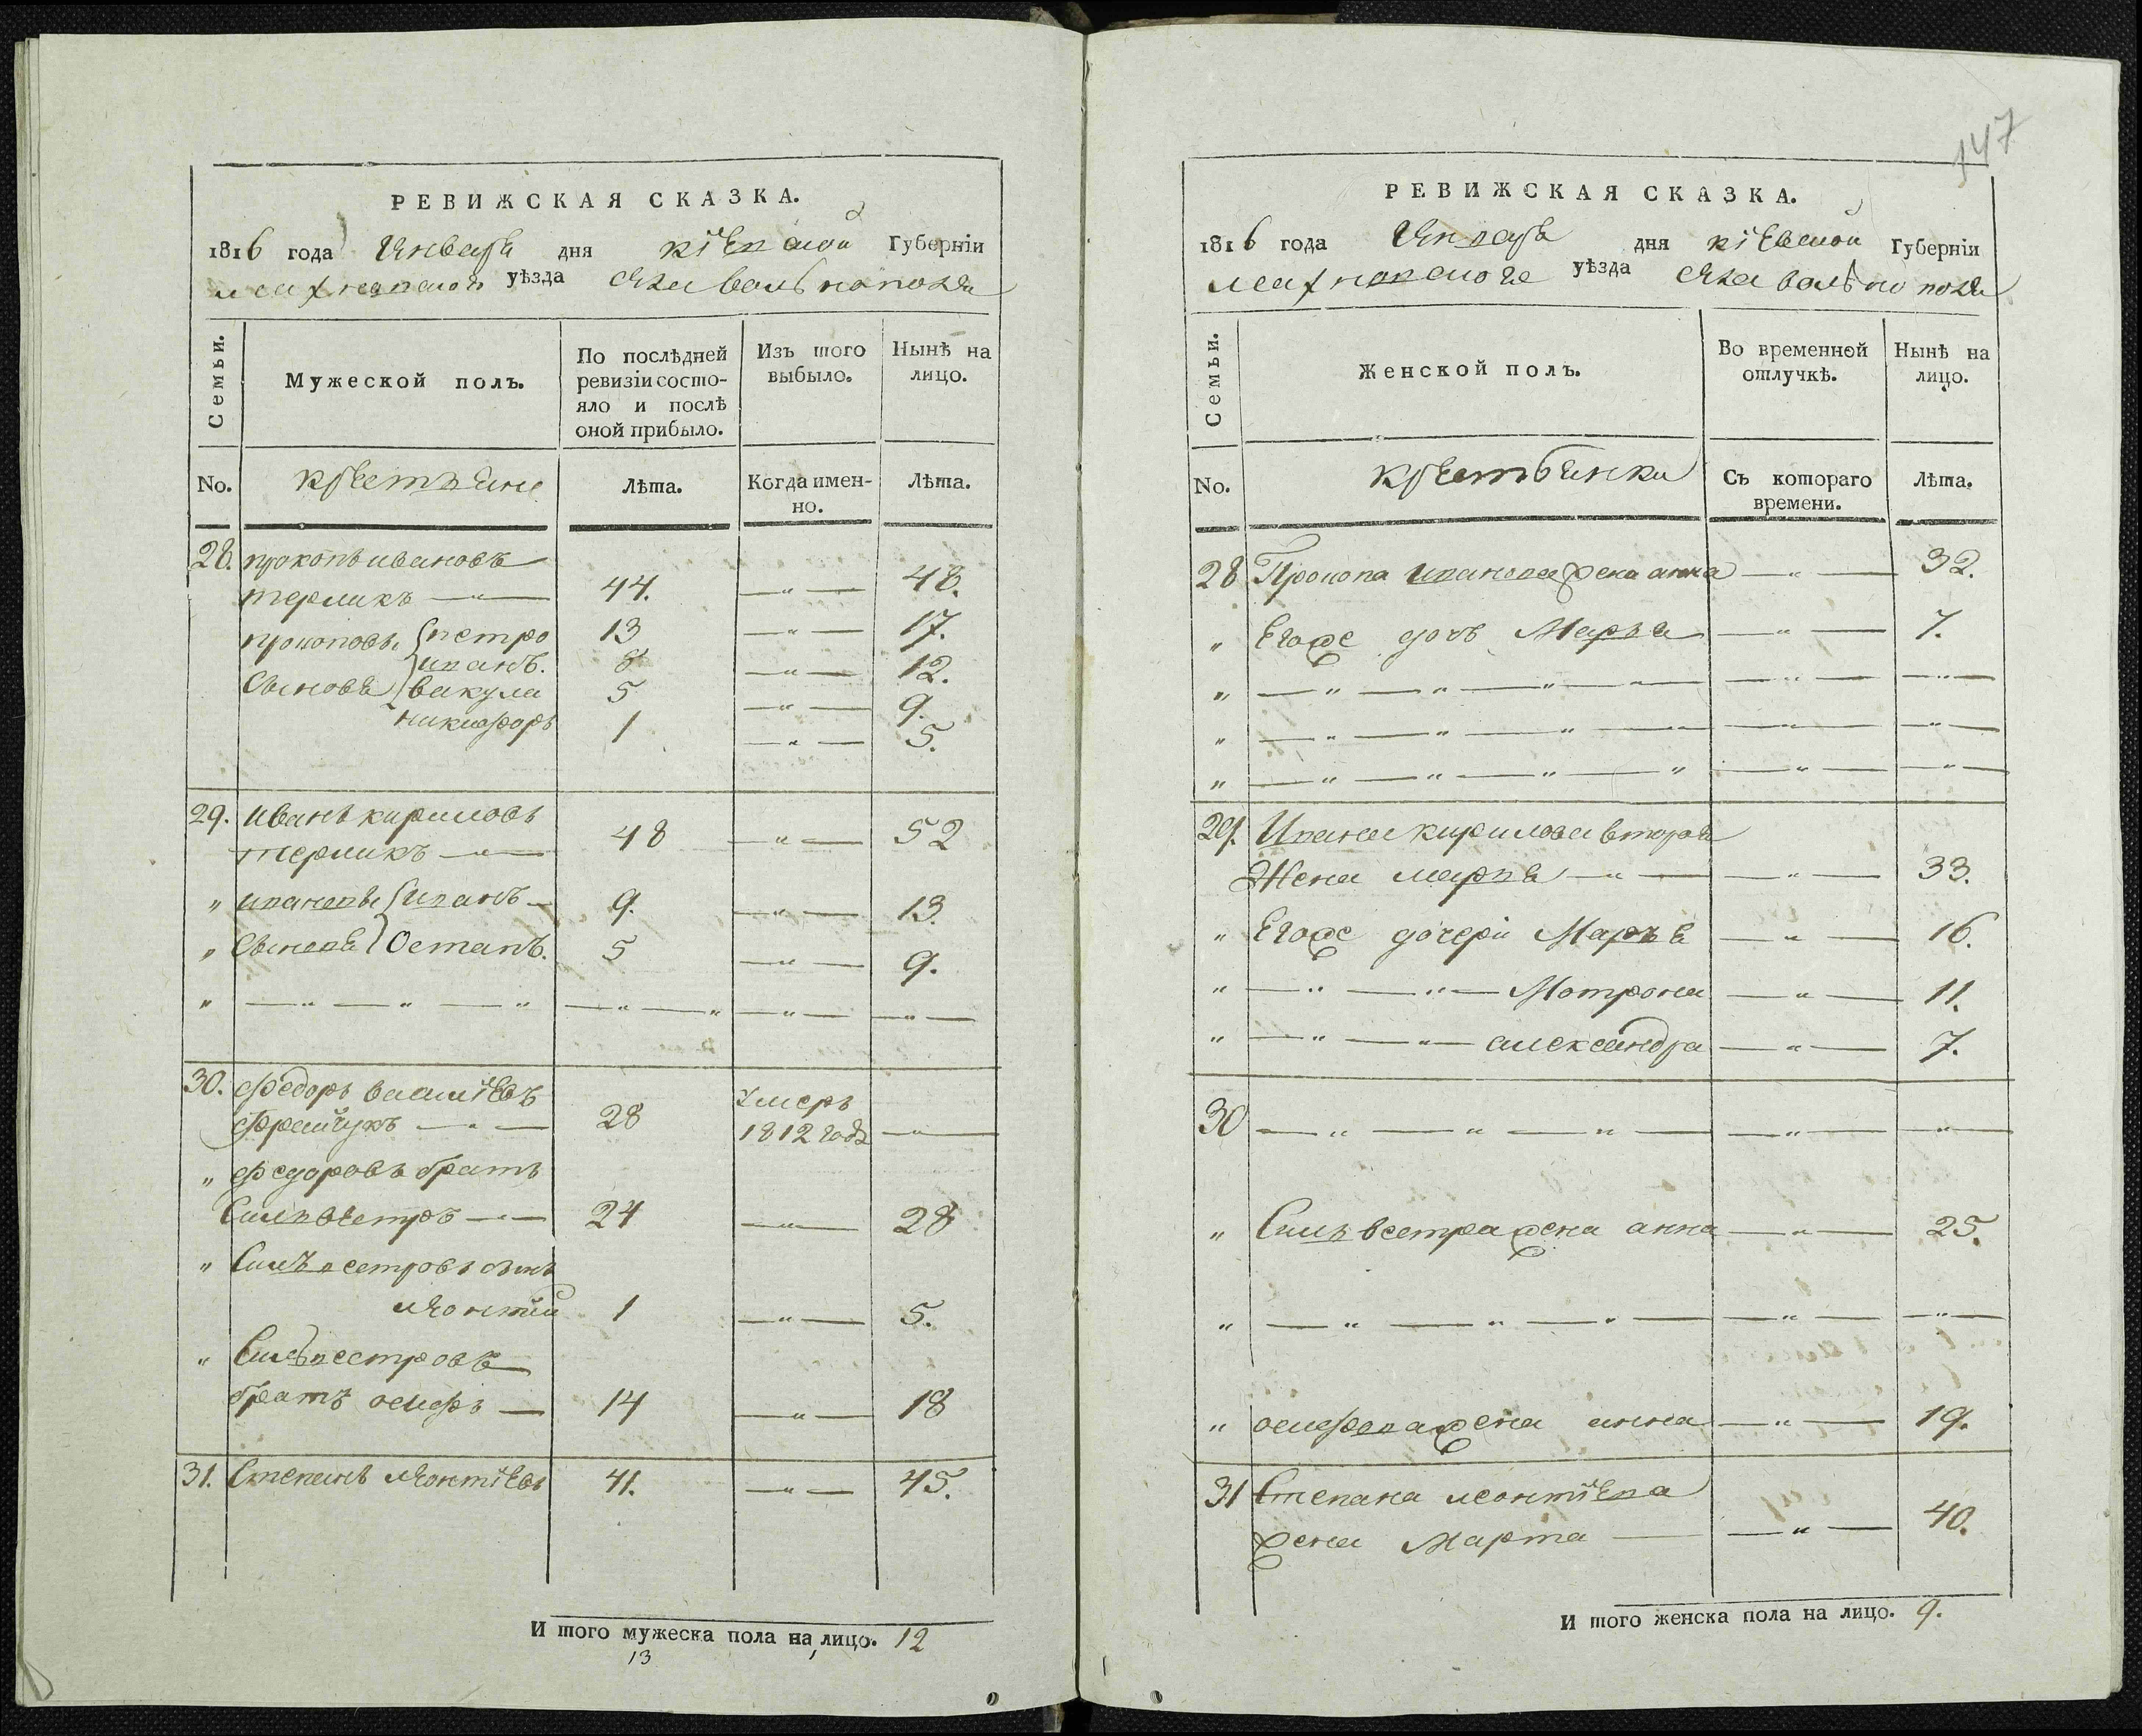 147
РЕВИЖСКАЯ СКАЗКА.
1816 года Января дня Кіевской Губерніи
Махновского уѣзда
Семьи.
Мужеской полъ.
По послѣдней ревизіи состояло и послѣ оной прибыло.
Изъ того выбыло.
Нынѣ на лицо.
No.
крестьяне
Лѣта.
Когда именно.
Лѣта.
28. прокопъ ивановъ
терликъ — " — 44. — " — 48.
прокоповы { петро 13 — " — 17.
иванъ. 8 — " — 12.
Сыновья вакула 5 — " — 9.
никифоръ 1 — " — 5.
29. иванъ кириловъ
терликъ — " — 48 — " — 52
" ивановы { иванъ — 9. — " — 13.
" Сыновья } Остапъ. 5 — " — 9.
" — " — " — " — " — " — " — " —
30. федоръ василіевъ умеръ
28 1812 года — " —
" федоровъ братъ
Сильвестръ — " — 24 — " — 28
" Сильвестровъ сынъ
леонтій 1 — " — 5.
" Сильвестровъ
братъ осифъ — 14 — " — 18
31. Степанъ леонтіевъ 41. — " — 45.
И того мужеска пола на лицо. 12
13
РЕВИЖСКАЯ СКАЗКА.
1816 года Января дня кіевской Губерніи
Махновского уѣзда
Семьи.
Женской полъ.
Во временной отлучкѣ.
Нынѣ на лицо.
No.
крестьянки
Съ котораго времени.
Лѣта.
28 Прокопа иванова жена анна — " — 32.
" Егоже дочь Марья — " — 7.
" — " — " — " — " — " — " —
" — " — " — " — " — " — " —
" — " — " — " — " — " — " —
29. Ивана кирилова вторая
Жена марья — " — — " — 33.
" Егоже дочери Марья — " — 16.
" — " — " — Мотрона — " — 11.
" — " — " — александра — " — 7.
30 — " — " — " — " — "
" Сильвестра жена анна — " — 25.
" — " — " — " — " — " —
" осифова жена анна — " — 19.
31 Степана леонтіева
жена Марта — — " — 40.
И того женска пола на лицо. 9.